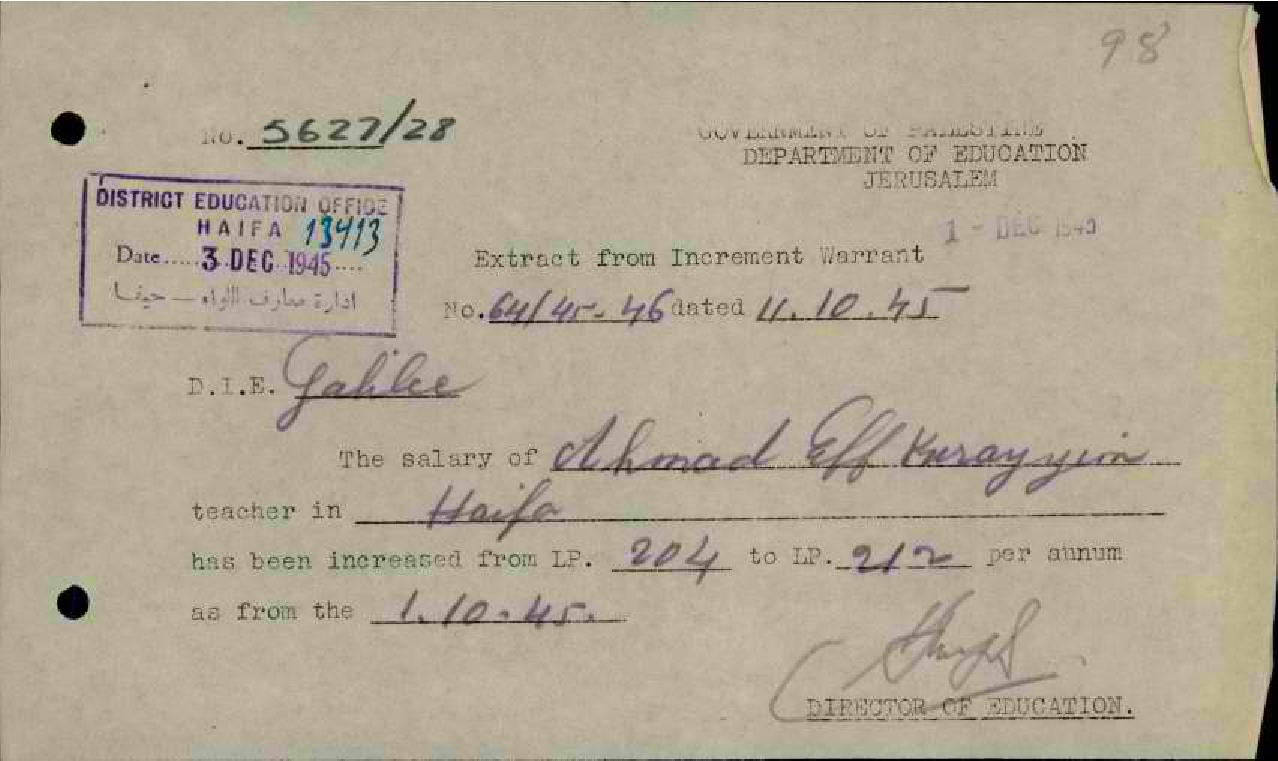 98
No. 5627/28
GOVERNMENT OF PALESTINE
DEPARTMENT OF EDUCATION
JERUSALEM
DISTRICT EDUCATION OFFICE
HAIFA 13413
Date..... 3 DEC 1945....
ادارة معارف اللواء — حيفا
1 - DEC 1945
Extract from Increment Warrant
No. 64/45-46 dated 11.10.45
D.I.E. Galilee
The salary of Ahmad Eff Kurayyim
teacher in Haifa
has been increased from LP. 204 to LP. 212 per annum
as from the 1.10.45.
DIRECTOR OF EDUCATION.